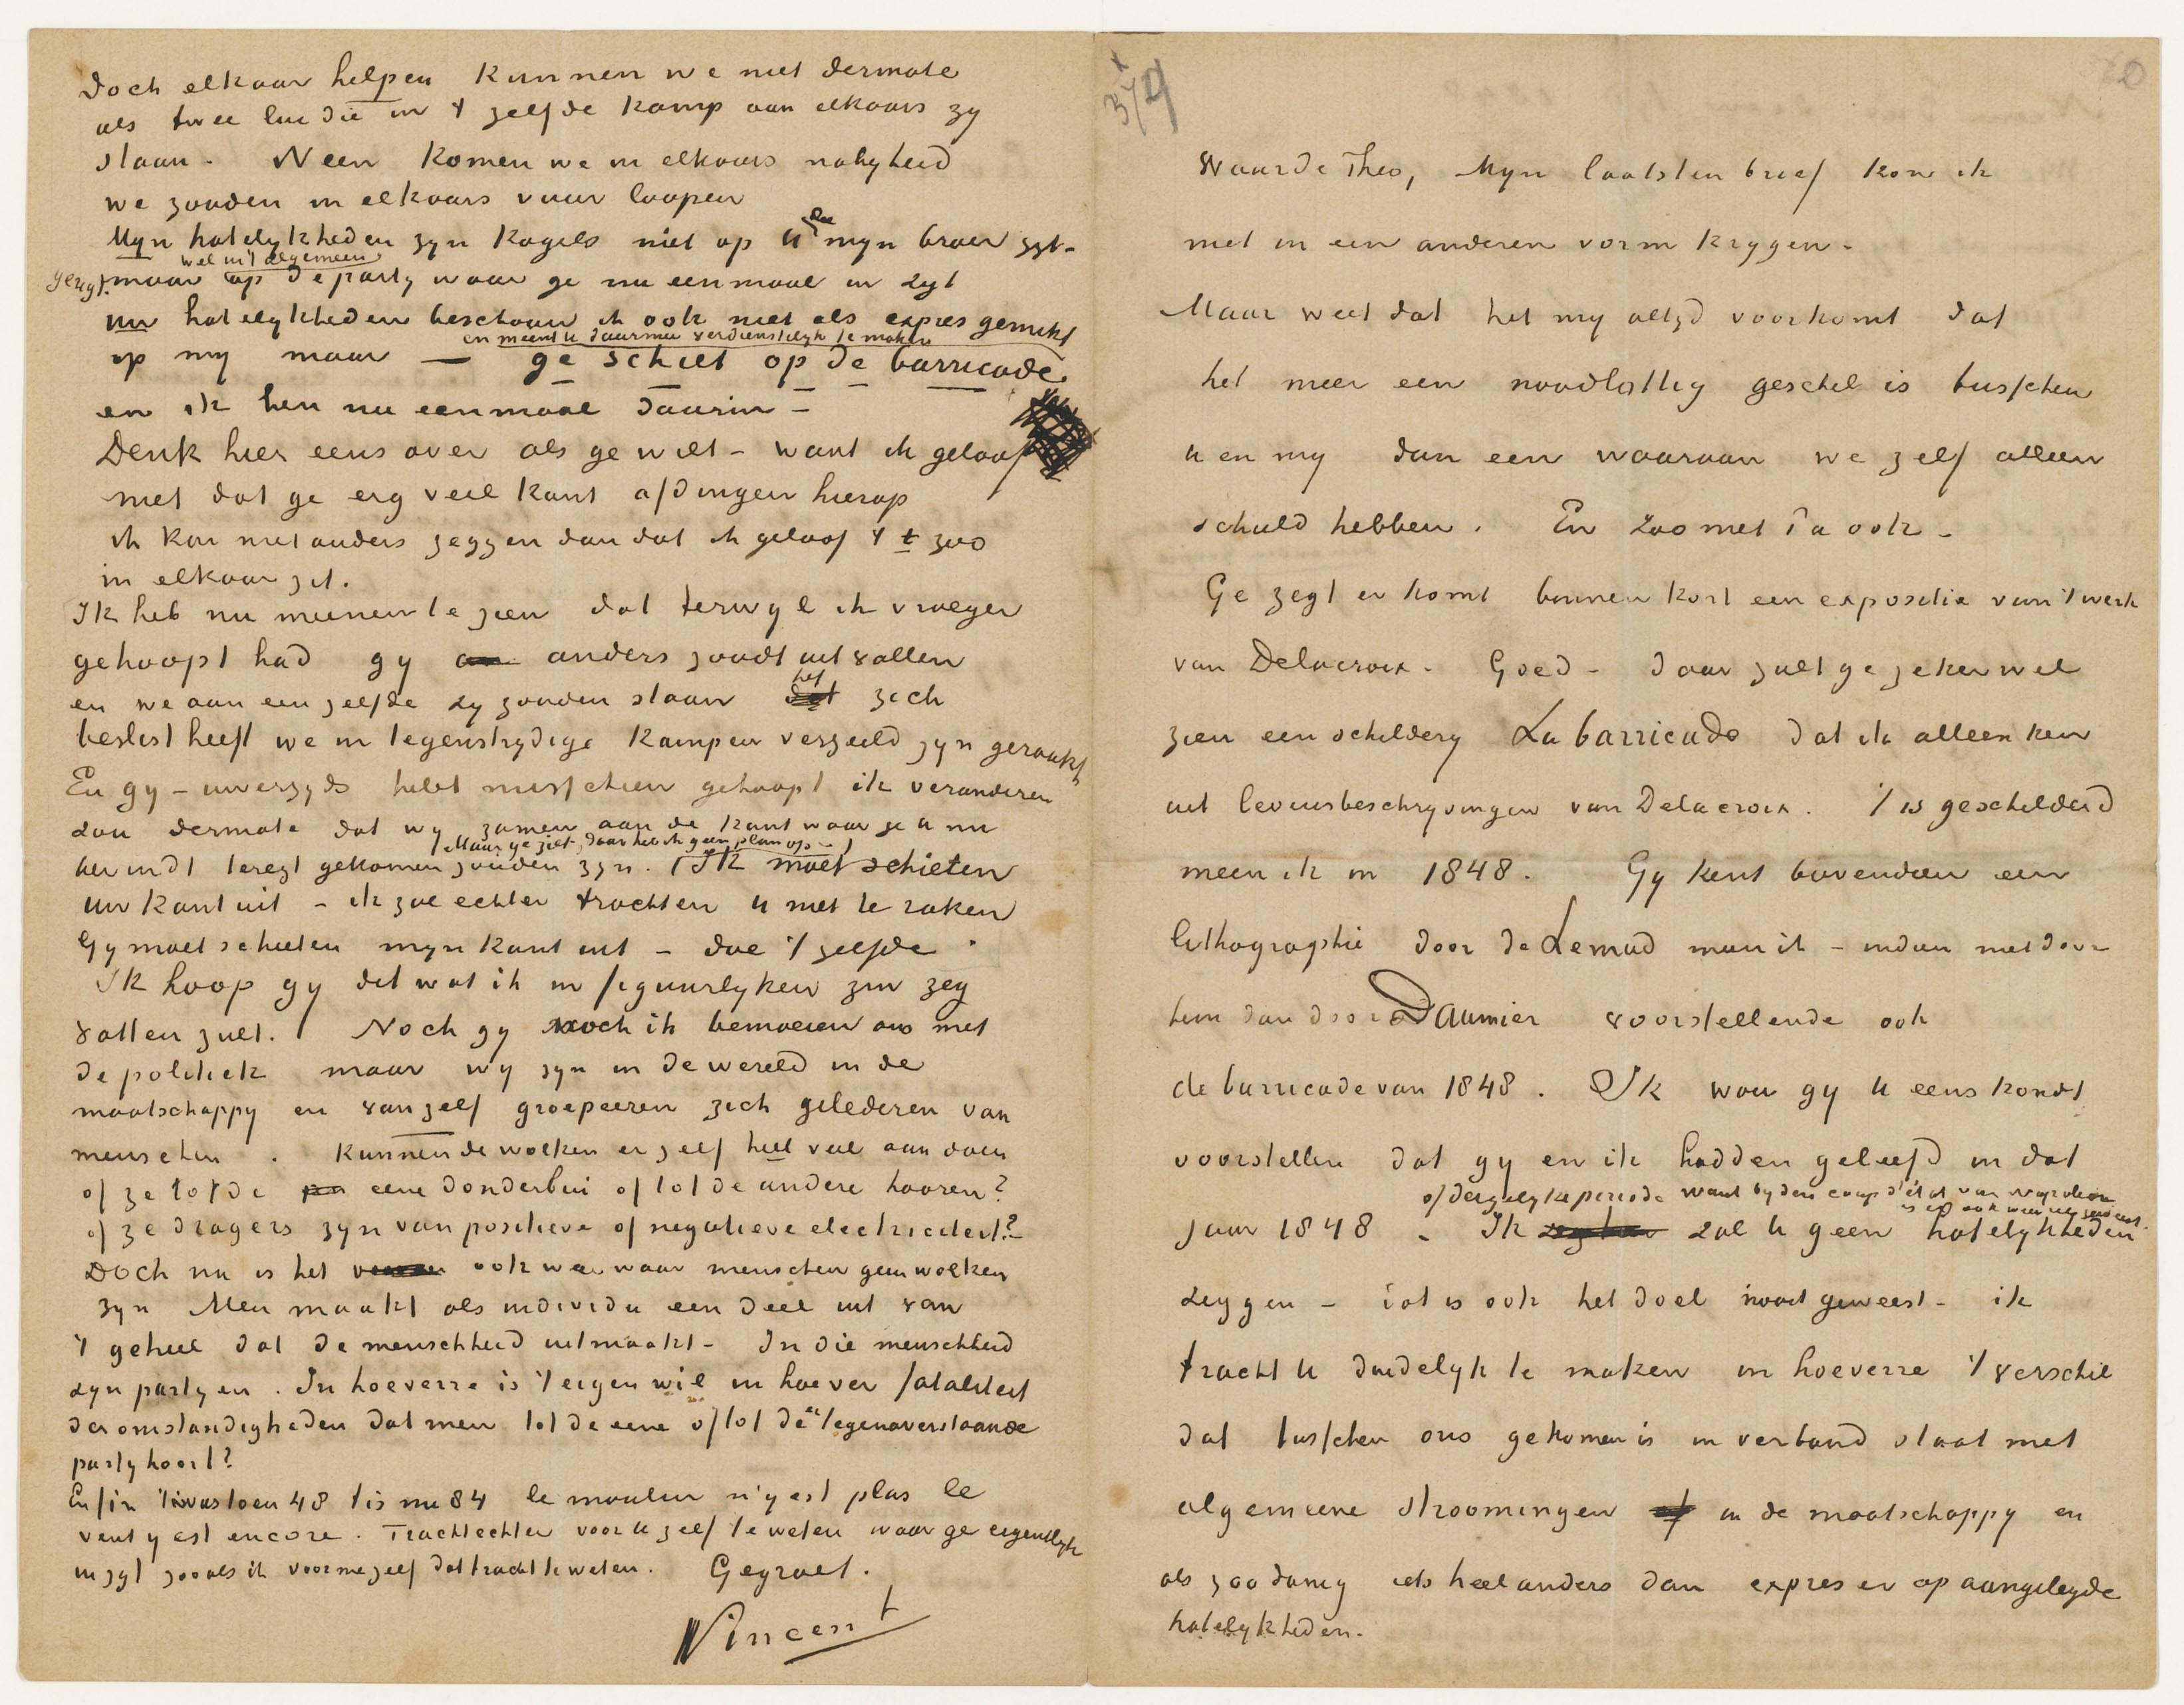 374
Waarde Theo, Mijn laatsten brief kon ik
niet in een anderen vorm krijgen.
Maar weet dat het mij altijd voorkomt dat
het meer een noodlottig geschil is tusschen
u en mij dan een waaraan we zelf alleen
schuld hebben. En zoo met Pa ook.
Ge zegt er komt binnen kort een expositie van 't werk
van Delacroix. Goed – daar zult ge zeker wel
zien een schilderij La barricade dat ik alleen ken
uit levensbeschrijvingen van Delacroix. 't is geschilderd
meen ik in 1848. Gij kent bovendien een
lithographie door de Lemud meen ik – indien niet door
hem dan door Daumier voorstellende ook
de barricade van 1848. Ik wou gij u eens kondt
voorstellen dat gij en ik hadden geleefd in dat
of dergelijke periode want bij den coup d'état van Napoleon
is er ook weer iets geweest.
jaar 1848. Ik zal u geen hatelijkheden
zeggen – dat is ook het doel nooit geweest – ik
tracht u duidelijk te maken in hoeverre 't verschil
dat tusschen ons gekomen is in verband staat met
algemeene stroomingen in de maatschappij en
als zoodanig iets heel anders dan expres er op aangelegde
hatelijkheden.
Doch elkaar helpen kunnen we niet dermate
als twee lui die in 't zelfde kamp aan elkaars zij
staan. Neen komen we in elkaars nabijheid
we zouden in elkaars vuur loopen
Mijn hatelijkheden zijn kogels niet op u die mijn broer zijt –
gerigt wel in't algemeen
maar op de partij waar ge nu eenmaal in zijt
uw hatelijkheden beschouw ik ook niet als expres gemikt
en meent u daarmee verdienstelijk te maken
op mij maar — ge schiet op de barricade
en ik ben nu eenmaal daarin –
Denk hier eens over als ge wilt – want ik geloof
niet dat ge erg veel kunt afdingen hierop
ik kan niet anders zeggen dan dat ik geloof 't t zoo
in elkaar zit.
Ik heb nu meenen te zien dat terwijl ik vroeger
gehoopt had gij anders zoudt uitvallen
en we aan een zelfde zij zouden staan het zich
beslist heeft we in tegenstrijdige kampen verzeild zijn geraakt
En gij – uwerzijds hebt misschien gehoopt ik veranderen
zou dermate dat wij zamen aan de kant waar ge u nu
Maar ge ziet, daar heb ik geen plan op –
bevindt teregt gekomen zouden zijn. Ik moet schieten
uw kant uit – ik zal echter trachten u niet te raken
Gij moet schieten mijn kant uit – doe 't zelfde.
Ik hoop gij dit wat ik in figuurlijken zin zeg
vatten zult. Noch gij noch ik bemoeien ons met
de politiek maar wij zijn in de wereld in de
maatschappij en van zelf groepeeren zich gelederen van
menschen. Kunnen de wolken er zelf heel veel aan doen
of ze tot de eene donderbui of tot de andere hooren?
of ze dragers zijn van positieve of negatieve electriciteit?
Doch nu is het ook wel waar menschen geen wolken
zijn Men maakt als individu een deel uit van
't geheel dat de menschheid uitmaakt – In die menschheid
zijn partijen. In hoeverre is 't eigen wil in hoever fataliteit
der omstandigheden dat men tot de eene of tot de tegenoverstaande
partij hoort?
Enfin 't was toen 48 't is nu 84 le moulin n'y est plus le
vent y est encore. Tracht echter voor u zelf te weten waar ge eigentlijk
in zijt zooals ik voor me zelf dat tracht te weten. Gegroet.
Vincent